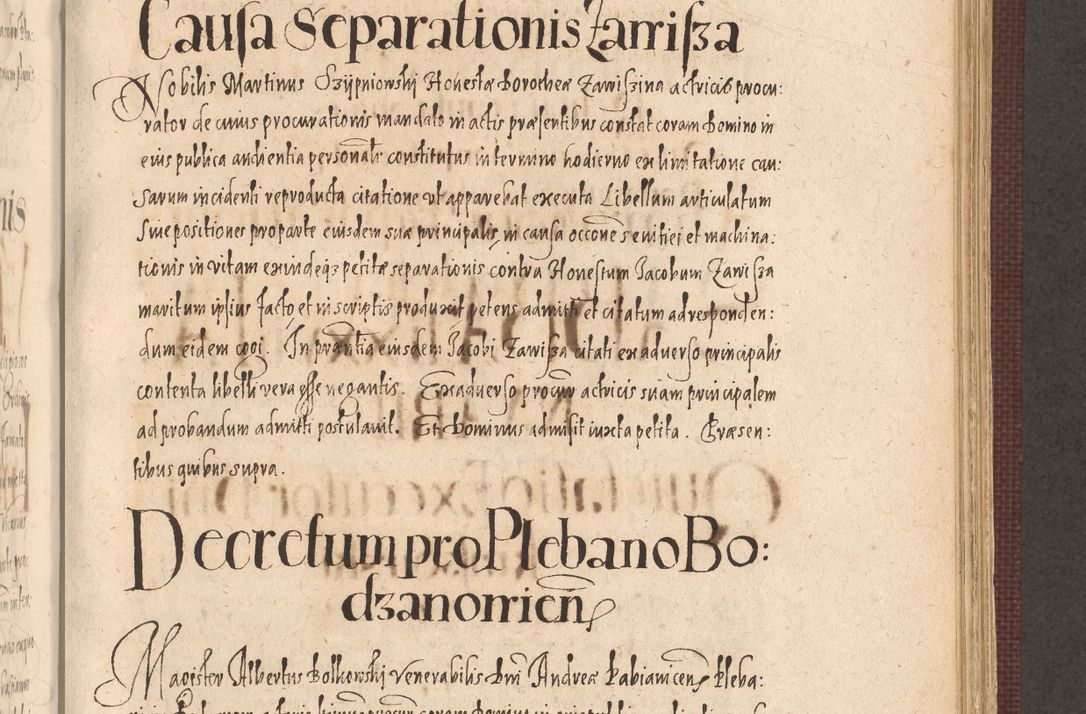 Causa Separationis Zawisza
Nobilis Martinus Szÿpniowski Honestæ Dorotheæ Zawiszina actricis procu:
rator de cuius procurationis mandato in actis præsentibus constat coram Domino in
eius publica audientia personalr constitutus in termino hodierno ex limitatione cau:
sarum incidenti reproducta citatione ut apparebat executa Libellum articulatum
siue positiones pro parte eiusdem suæ principalis in causa occone sevitiei et machina:
tionis in vitam exindeqʒ petitæ separationis contra Honestum Jacobum Zawisza
maritum ipsius facto et in scriptis produxit petens admitti et citatum ad responden:
dum eidem cogi. In præntia eiusdem Jacobi Zawisza citati ex aduerso principalis
contenta libelli vera esse negantis. Ex aduerso procur actricis suam principalem
ad probandum admitti postulauit. Et Dominus admisit iuxta petita. Præsen:
tibus quibus supra.
Decretum pro Plebano Bo:
dzanowien
Magister Albertus Bolkowski Venerabilis Dni Andreæ Pabianicen Pleba: